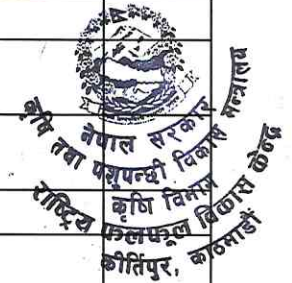 नेपाल सरकार
कृषि तथा पशुपन्छी विकास मन्त्रालय
कृषि विभाग
राष्ट्रिय फलफूल विकास केन्द्र
कीर्तिपुर, काठमाडौं